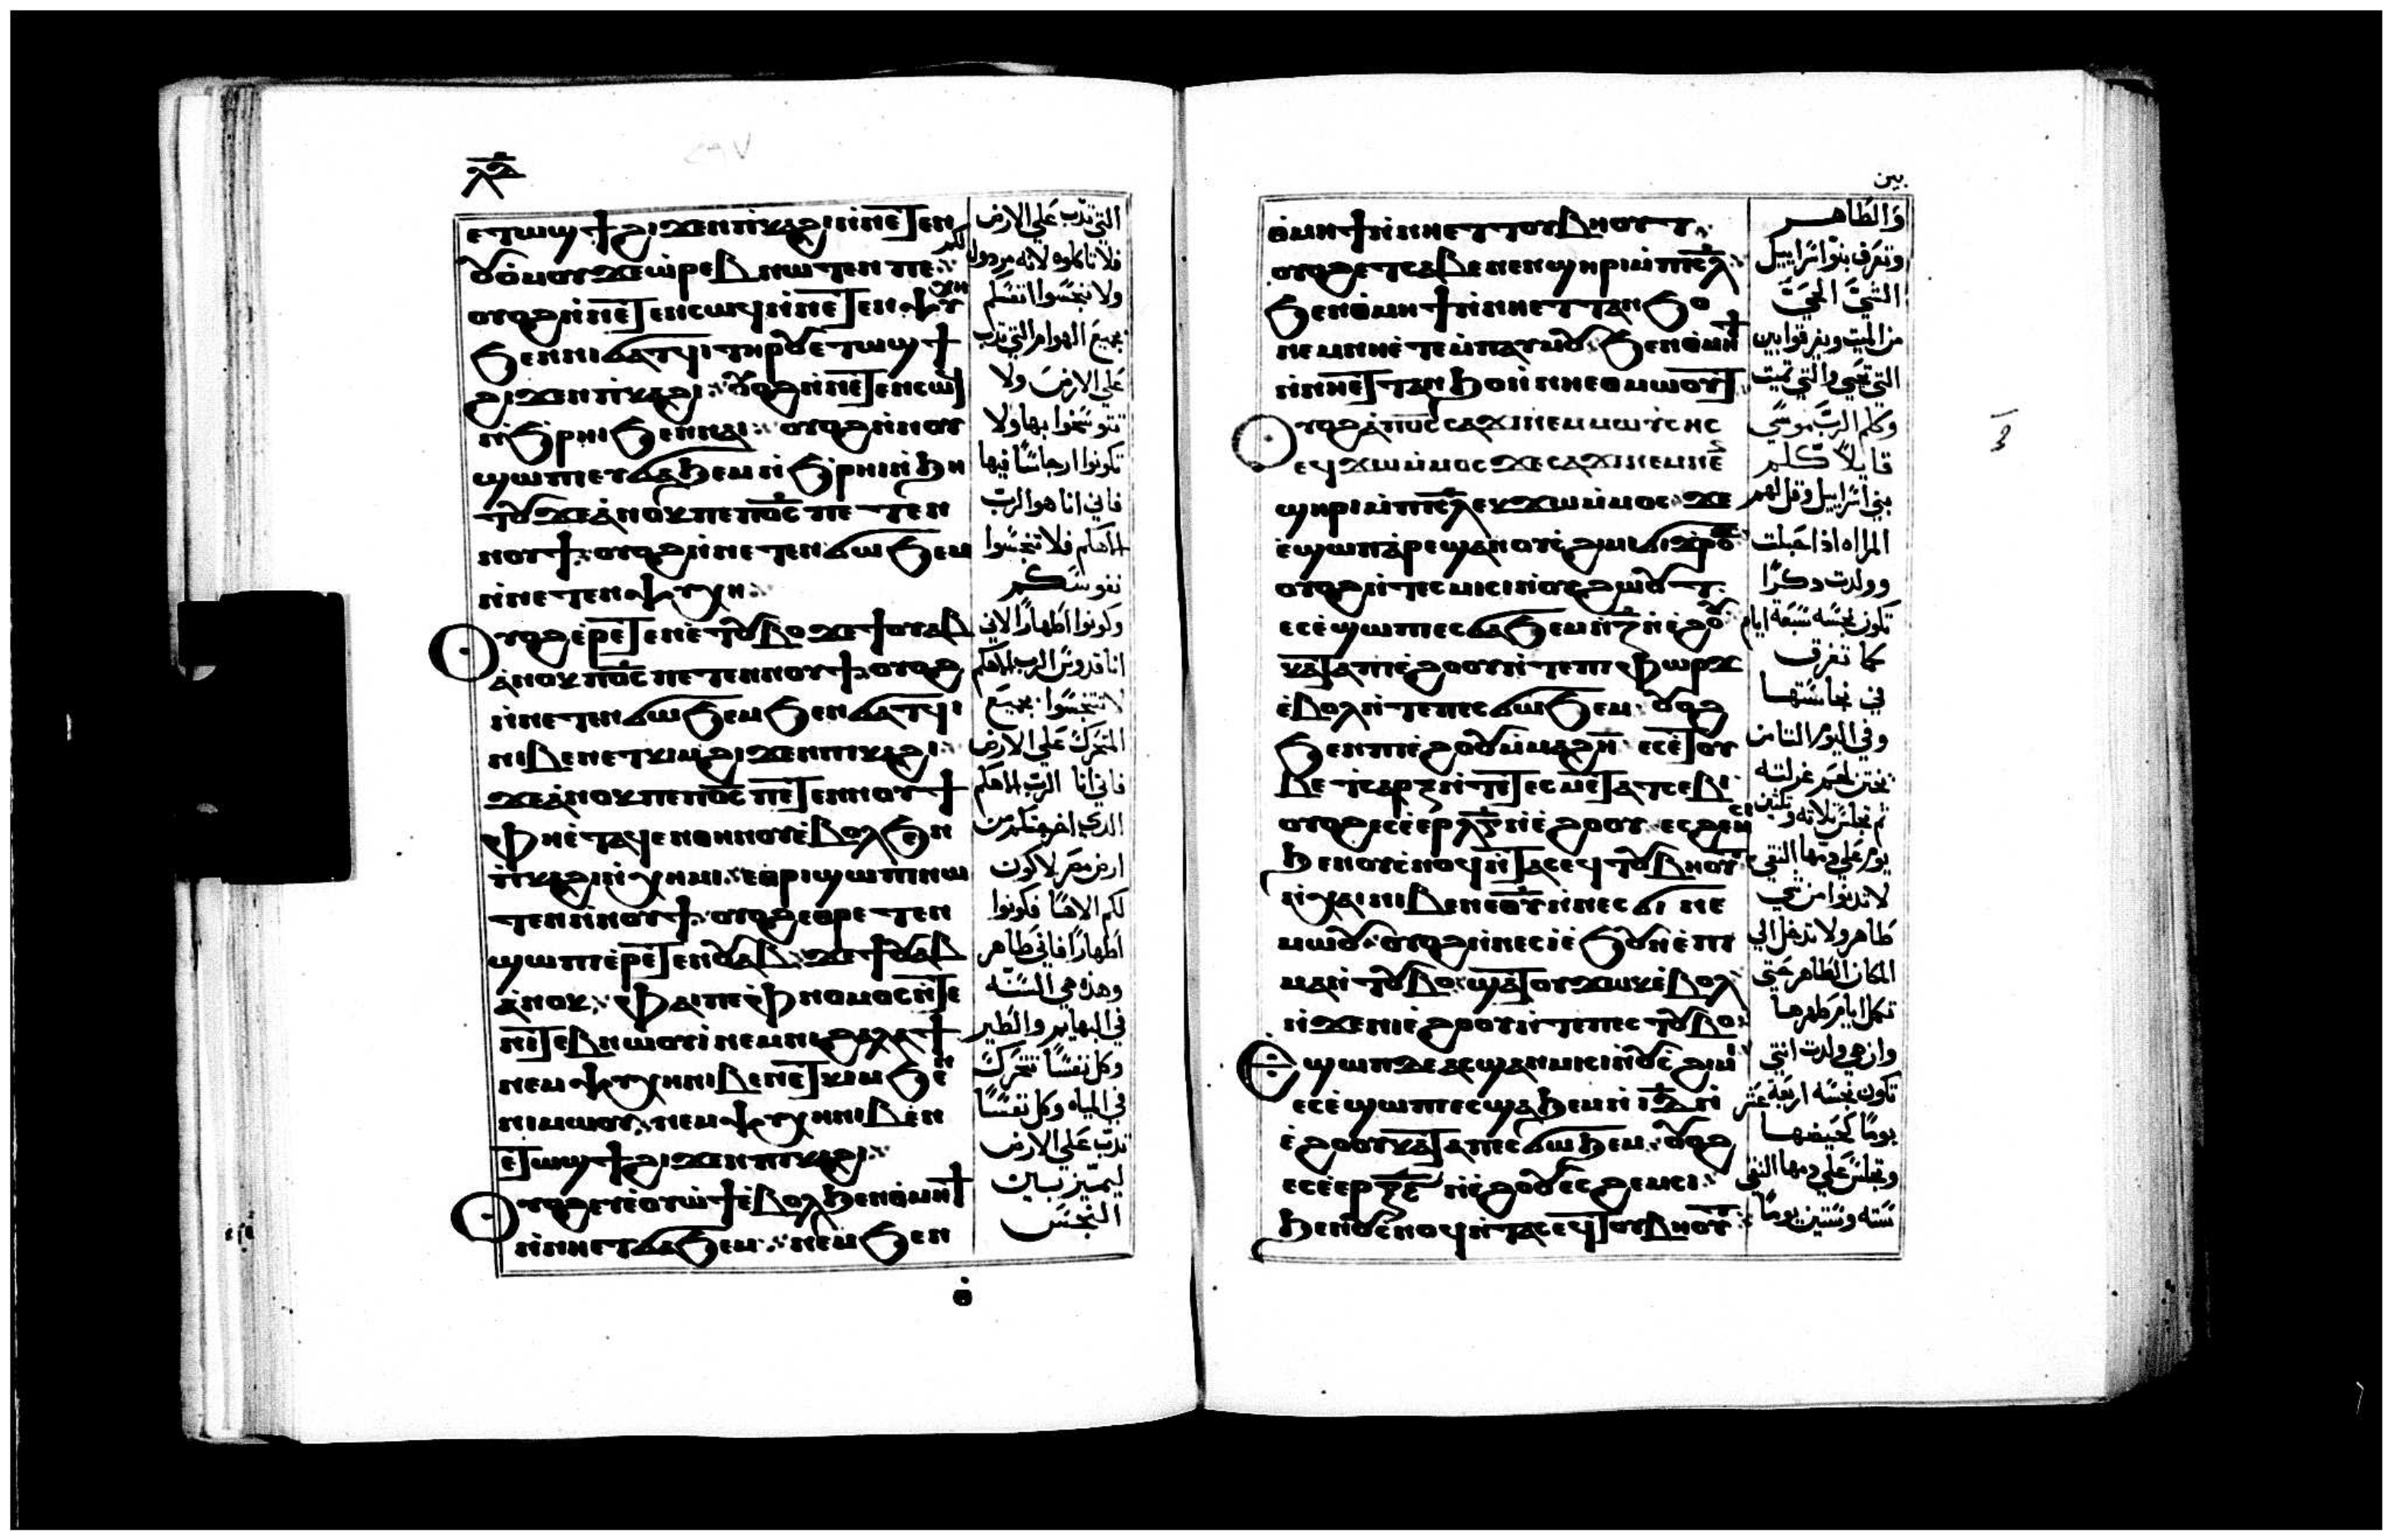 ⲉⲧⲱϣϯϩⲓϫⲉⲛⲡⲓⲕⲁϩⲓⲛ̀ⲛⲉⲧⲉⲛ
ⲟⲩⲟⲙⲟⲩϫⲉⲱ̀ⲣⲉⲃⲛⲱⲧⲉⲛⲡⲉ
ⲟⲩⲟϩⲛ̀ⲛⲉⲧⲉⲛⲥⲱϥⲛ̀ⲛⲉⲧⲉⲛⲯⲩⲭⲏ
ϧⲉⲛⲛⲓϭⲁⲧϥⲓⲧⲏⲣⲟⲩⲉⲧⲱϣϯ
ϩⲓϫⲉⲛⲡⲓⲕⲁϩⲓ ⲟⲩⲟϩⲛ̀ⲛⲉⲧⲉⲛⲥⲱϥ
ⲛ̀ϧⲣⲏⲓϧⲉⲛⲛⲁⲓ ⲟⲩⲟϩⲛ̀ⲛⲟⲩ
ϣⲱⲡⲓⲉⲩϭⲁϧⲉⲙⲛ̀ϧⲣⲏⲓⲛ̀ϧⲏ
ⲧⲟⲩϫⲉⲁ̀ⲛⲟⲕⲡⲉⲡⲟ̅ⲥ̅ⲡⲉⲧⲉⲛ
ⲛⲟⲩϯ ⲟⲩⲟϩⲛ̀ⲛⲉⲧⲉⲛϭⲱϧⲉⲙ
ⲛ̀ⲛⲉⲧⲉⲛⲯⲩⲭⲏ
ⲟⲩⲟϩⲉ̀ⲣⲉⲧⲉⲛⲉ̀ⲧⲟⲩⲃⲟ ϫⲉϯⲟⲩⲁⲃ
ⲁ̀ⲛⲟⲕⲡⲟ̅ⲥ̅ⲡⲉⲧⲉⲛⲛⲟⲩϯ ⲟⲩⲟϩ
ⲛ̀ⲛⲉⲧⲉⲛϭⲱϧⲉⲙϧⲉⲛϭⲁⲧϥⲓ
ⲛⲓⲃⲉⲛⲉⲧⲕⲓⲙϩⲓϫⲉⲛⲡⲓⲕⲁϩⲓ
ϫⲉⲁ̀ⲛⲟⲕⲡⲉⲡⲟ̅ⲥ̅ⲡⲉⲧⲉⲛⲛⲟⲩϯ
ⲫⲏⲉ̀ⲧⲁϥⲉⲛⲑⲏⲛⲟⲩⲉ̀ⲃⲟⲗϧⲉⲛ
ⲡ̀ⲕⲁϩⲓⲛ̀ⲭⲏⲙⲓ ⲉⲑⲣⲓϣⲱⲡⲓⲛⲱ
ⲧⲉⲛⲛ̀ⲛⲟⲩϯ ⲟⲩⲟϩⲉⲑⲣⲉⲧⲉⲛ
ϣⲱⲡⲓⲉ̀ⲣⲉⲧⲉⲛⲟⲩⲁⲃ ϫⲉϯⲟⲩⲁⲃ
ⲁ̀ⲛⲟⲕ ⲫⲁⲓⲡⲉⲫ̀ⲛⲟⲙⲟⲥⲛ̀ⲧⲉ
ⲛⲓⲧⲉⲃⲛⲱⲟⲩⲓ̀ⲛⲉⲙⲛⲓϩⲁⲗⲁϯ
ⲛⲉⲙⲯⲩⲭⲏⲛⲓⲃⲉⲛⲉⲧⲕⲓⲙϧⲉⲛ
ⲛⲓⲙⲱⲟⲩ ⲛⲉⲙⲯⲩⲭⲏⲛⲓⲃⲉⲛ
ⲉⲧⲱϣϯϩⲓϫⲉⲛⲡⲓⲕⲁϩⲓ
ⲟⲩⲟϩⲉⲩⲉⲟⲩⲱϯⲉ̀ⲃⲟⲗϧⲉⲛⲑ̀ⲙⲏϯ
ⲛ̀ⲛⲏⲉⲧϭⲁϧⲉⲙ ⲛⲉⲙϧⲉⲛ
التي تدب علي الارض
فلا تاكلوه لانه مردول لكم
ولا تنجسوا انفسكم
بجميع الهوام التي تدب
علي الارض ولا
تتوسخوا بها ولا
تكونوا ارجاسًا فيها
فاني انا هو الرب
الاهكم فلا تنجسوا
نفوسكم
وكونوا اطهارًا لاني
انا قدوس الرب الاهكم
لا تتنجسوا بجميع
المتحرك علي الارض
فاني انا الرب الاهكم
الذي اخرجتكم من
ارض مصر لاكون
لكم الاهًا فكونوا
اطهارًا فاني طاهر
وهذه هي السنه
في البهايم والطير
وكل نفسًا تتحرك
في المياه وكل نفسًا
تدب علي الارض
ليميز بين
النجس
بين
ⲑ̀ⲙⲏϯⲛ̀ⲛⲏⲉⲧⲧⲟⲩⲃⲏⲟⲩⲧ
ⲟⲩⲟϩⲉⲧⲥⲁⲃⲉⲛⲉⲛϣⲏⲣⲓⲙ̀ⲡⲓⲥ̅ⲗ̅
ϧⲉⲛⲑ̀ⲙⲏϯⲛ̀ⲛⲏⲉⲧⲧⲁⲛϧⲟ
ⲛⲉⲙⲛⲏⲉ̀ⲧⲉⲙ̀ⲡⲁⲩⲙⲟⲩ ϧⲉⲛⲑ̀ⲙⲏϯ
ⲛ̀ⲛⲏⲉⲧⲧⲁⲛϧⲟⲛ̀ⲛⲏⲉⲑⲙⲱⲟⲩⲧ
ⲟⲩⲟϩⲁ̀ⲡⲟ̅ⲥ̅ⲥⲁϫⲓⲛⲉⲙⲙⲱⲩⲥⲏⲥ
ⲉϥϫⲱⲙ̀ⲙⲟⲥϫⲉⲥⲁϫⲓⲛⲉⲙⲛⲉⲛ
ϣⲏⲣⲓⲙ̀ⲡⲓⲥ̅ⲗ̅ⲉⲕϫⲱⲙ̀ⲙⲟⲥ ϫⲉ
ⲉ̀ϣⲱⲡⲁ̀ⲣⲉϣⲁⲛⲟⲩⲥ̀ϩⲓⲙⲓϭⲓϫ̀ⲣⲟϫ
ⲟⲩⲟϩⲛ̀ⲧⲉⲥⲙⲓⲥⲓⲛ̀ⲟⲩϩⲱⲟⲩⲧ
ⲉⲥⲉ̀ϣⲱⲡⲉⲥϭⲁϧⲉⲙⲛ̀ⲍ̅ⲛ̀ⲉ̀ϩⲟⲟⲩ
ⲕⲁⲧⲁⲡⲓⲉ̀ϩⲟⲟⲩⲛ̀ⲧⲉⲡⲓⲫⲱⲣϫ
ⲉ̀ⲃⲟⲗⲛ̀ⲧⲉⲡⲉⲥϭⲱϧⲉⲙ ⲟⲩⲟϩ
ϧⲉⲛⲡⲓⲉ̀ϩⲟⲟⲩⲙ̀ⲙⲁϩⲏ̅ ⲉⲥⲉ̀ⲥⲟⲩ
ⲃⲉⲧ̀ⲥⲁⲣⲝⲛ̀ⲧⲉⲧⲉϥⲙⲉⲧⲁⲧⲥⲉⲃⲓ
ⲟⲩⲟϩⲉⲥⲉ̀ⲉⲣⲗ̅ⲅ̅ⲛ̀ⲉ̀ϩⲟⲟⲩ ⲉⲥϩⲉⲙⲥⲓ
ϧⲉⲛⲟⲩⲥ̀ⲛⲟϥⲛ̀ⲧⲁⲥⲉϥⲧⲟⲩⲃⲏⲟⲩⲧ
ⲛ̀ⲭⲁⲓⲛⲓⲃⲉⲛⲉⲑⲟⲩⲁⲃⲛ̀ⲛⲉⲥϭⲓⲛⲉ
ⲙⲱⲟⲩ ⲟⲩⲟϩⲛ̀ⲛⲉⲥⲓ̀ⲉ̀ϧⲟⲩⲛⲉ̀ⲡⲓ
ⲙⲁⲛ̀ⲧⲟⲩⲃⲟ ϣⲁⲧⲟⲩϫⲱⲕⲉ̀ⲃⲟⲗ
ⲛ̀ϫⲉⲛⲓⲉ̀ϩⲟⲟⲩⲛ̀ⲧⲉⲡⲉⲥⲧⲟⲩⲃⲟ
ⲉ̀ϣⲱⲡⲇⲉⲁⲥϣⲁⲛⲙⲓⲥⲓⲛ̀ⲟⲩⲥ̀ϩⲓⲙⲓ
ⲉⲥⲉ̀ϣⲱⲡⲉⲥϭⲁϧⲉⲙⲛ̀ⲓ̅ⲇ̅ⲛ̀
ⲉ̀ϩⲟⲟⲩⲕⲁⲧⲁⲡⲉⲥϭⲱϧⲉⲙ ⲟⲩⲟϩ
ⲉⲥⲉ̀ⲉⲣⲝ̅ⲋ̅ⲛ̀ⲉ̀ϩⲟⲟⲩⲉⲥϩⲉⲙⲥⲓ
ϧⲉⲛⲟⲩⲥ̀ⲛⲟϥⲛ̀ⲧⲁⲥⲉϥⲧⲟⲩⲃⲏⲟⲩⲧ
والطاهر
وتعرف بنوا اسراييل
الشي الحي
من الميت ويفرقوا بين
التي تحيي والتي تميت
وكلم الرب موسي
قايلاً كلم
بني اسراييل وقل لهم
المراه اذا حبلت
وولدت ذكرًا
تكون نجسه سبعة ايام
كما تفرق
في نجاستها
وفي اليوم الثامن
يختن لحم غرلته
ثم تجلس ثلاثه وثلثين
يوم علي دمها النقي
لا تدنوا من شي
طاهر ولا تدخل الي
المكان الطاهر حتي
تكمل ايام طهرها
وان هي ولدت انثي
تكون نجسه اربعة عشر
يومًا كحيضها
وتجلس علي دمها النقي
سته وستين يومًا